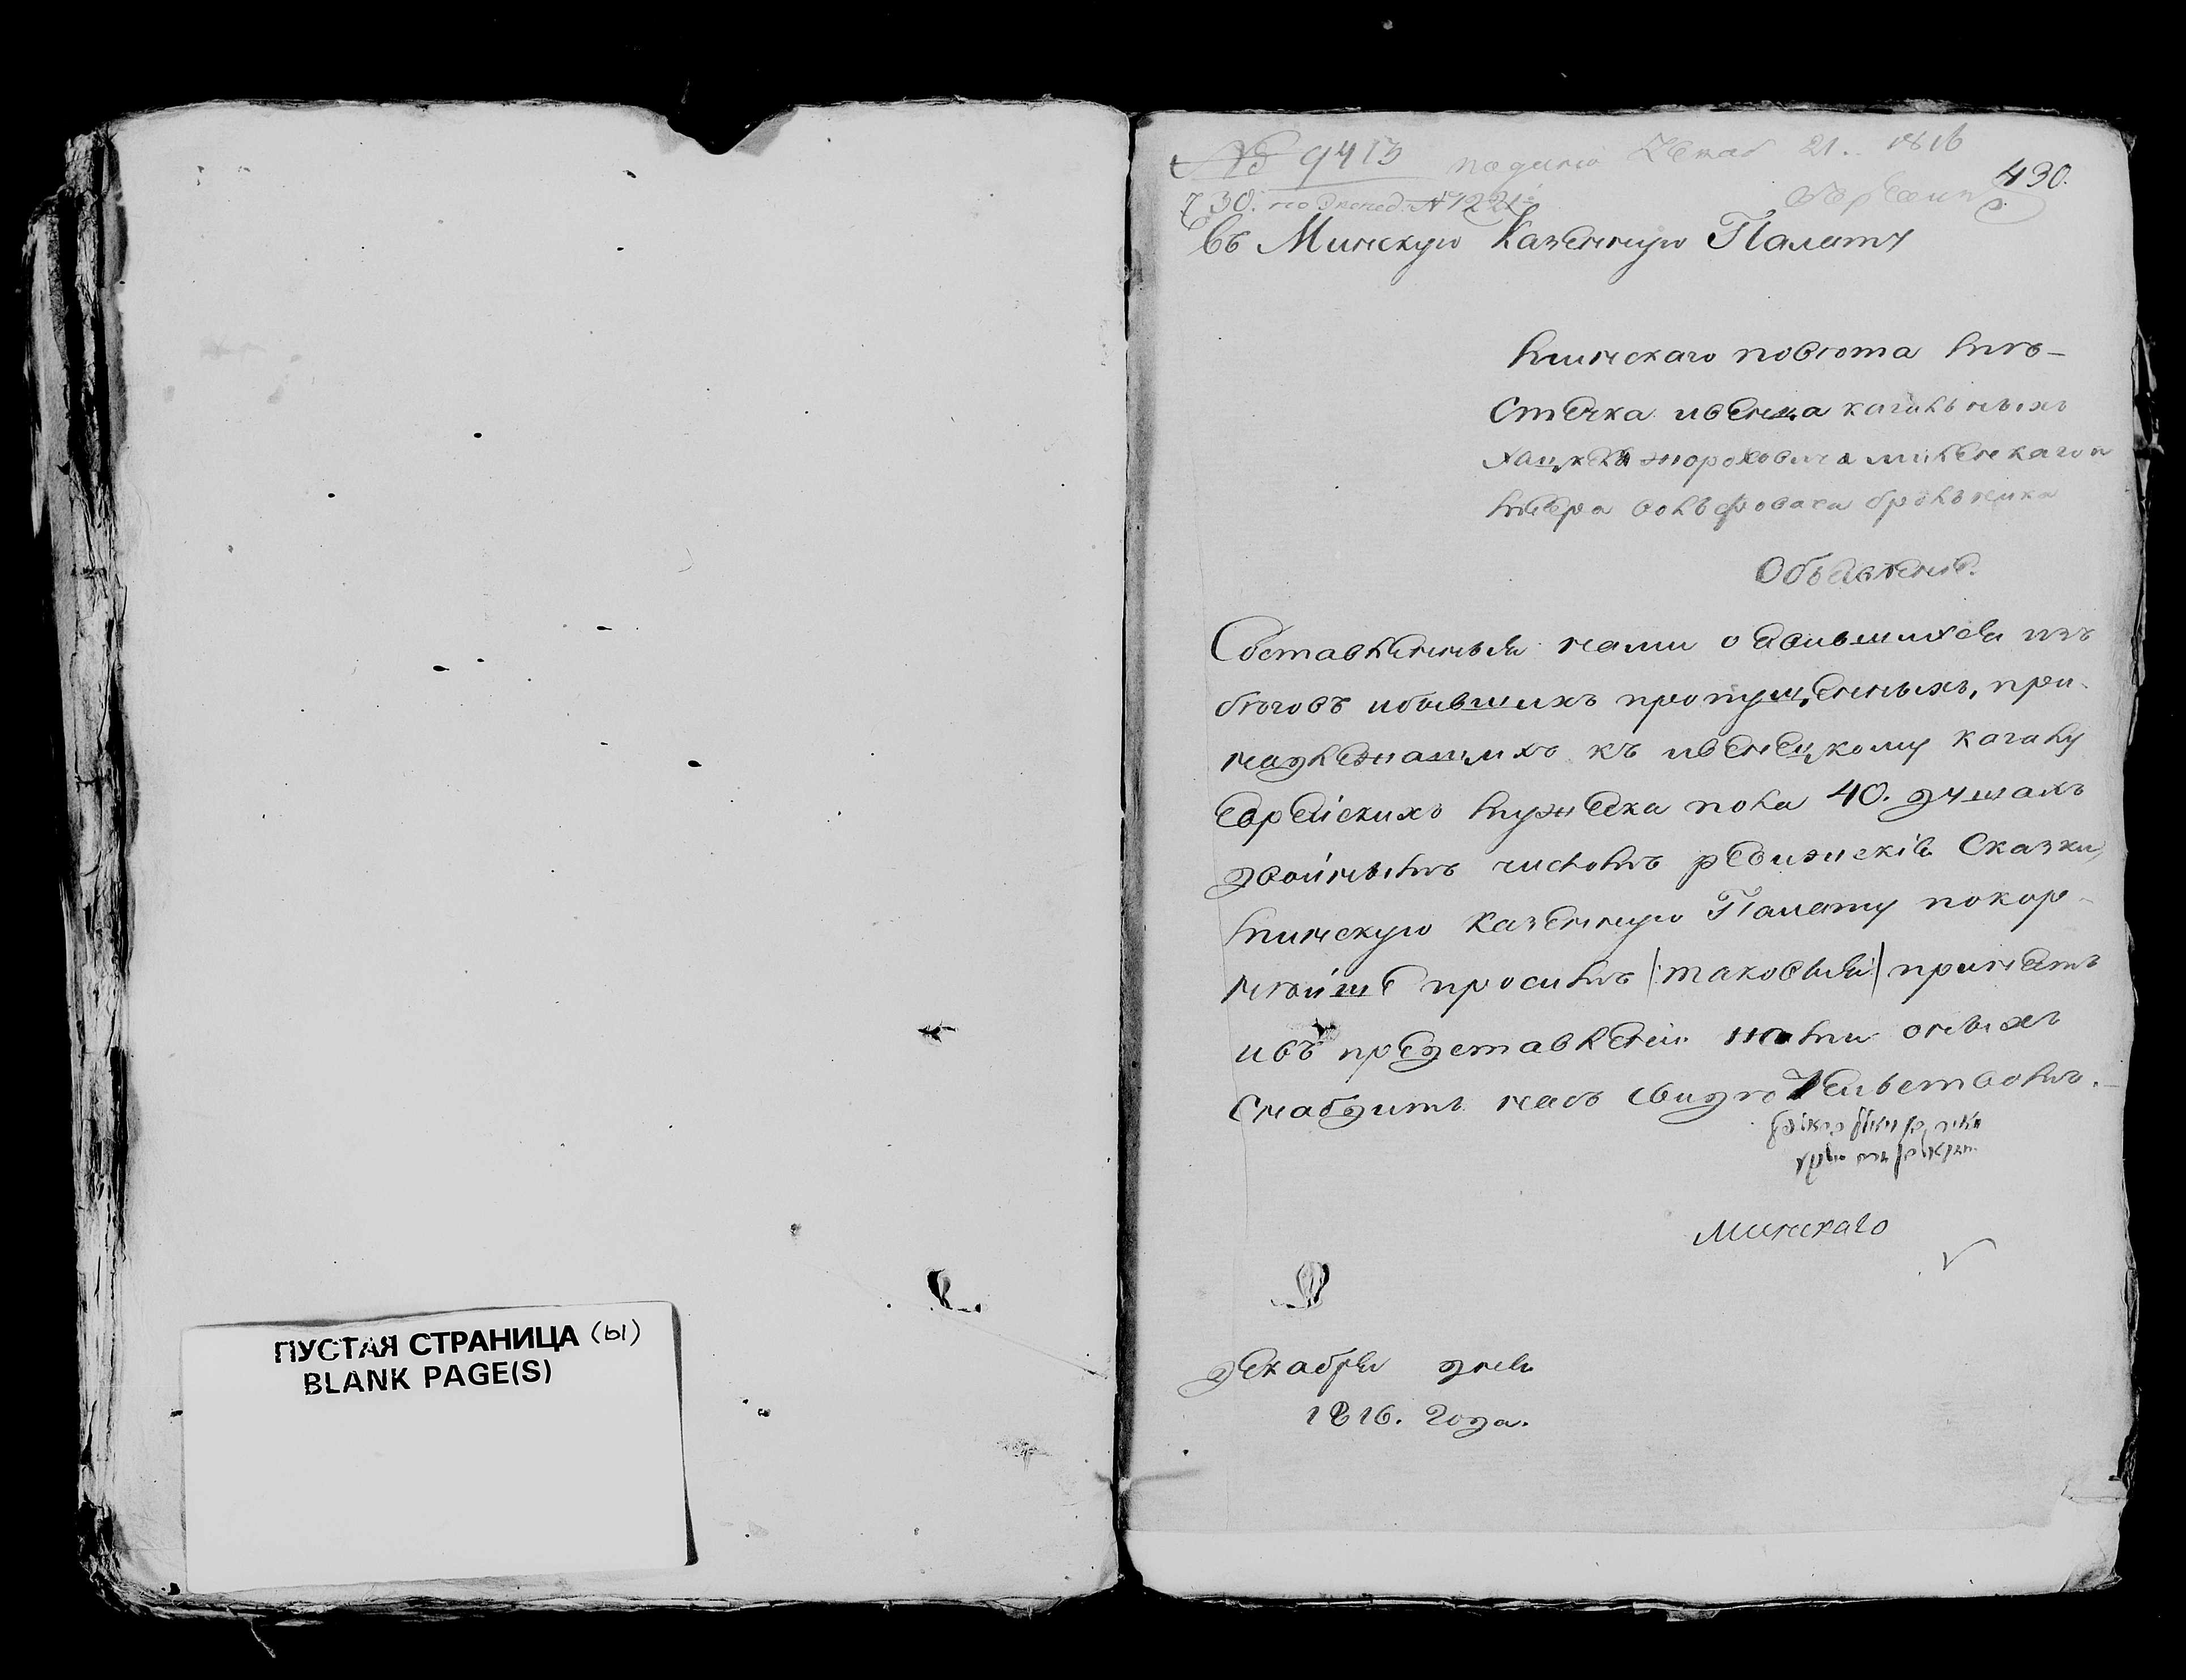 ПУСТАЯ СТРАНИЦА (ы)
BLANK PAGE(S)
№ 9413 подано Декаб 21. 1816
430.
730. по Экспед. № 1221
Въ Минскую Казенную Палату
Минскаго повѣта мѣ-
стечка ивенца кагальныхъ
хацкеля жороховича миленскаго и
меера вольфовича
Объявленіе.
Составленныя нами о явившихся изъ
бѣговъ и бывшихъ пропущенныхъ, при-
надлежащихъ къ ивенецкому кагалу
Еврейскихъ мужеска пола 40. душахъ
двойнымъ числомъ ревижскія Сказки,
минскую Казенную Палату покор-
нѣйше просимъ /таковыя/ принять
и въ представленіи нами оныхъ
Снабдить насъ свидѣтельствомъ.
Минскаго
декабря дня
1816. Года.